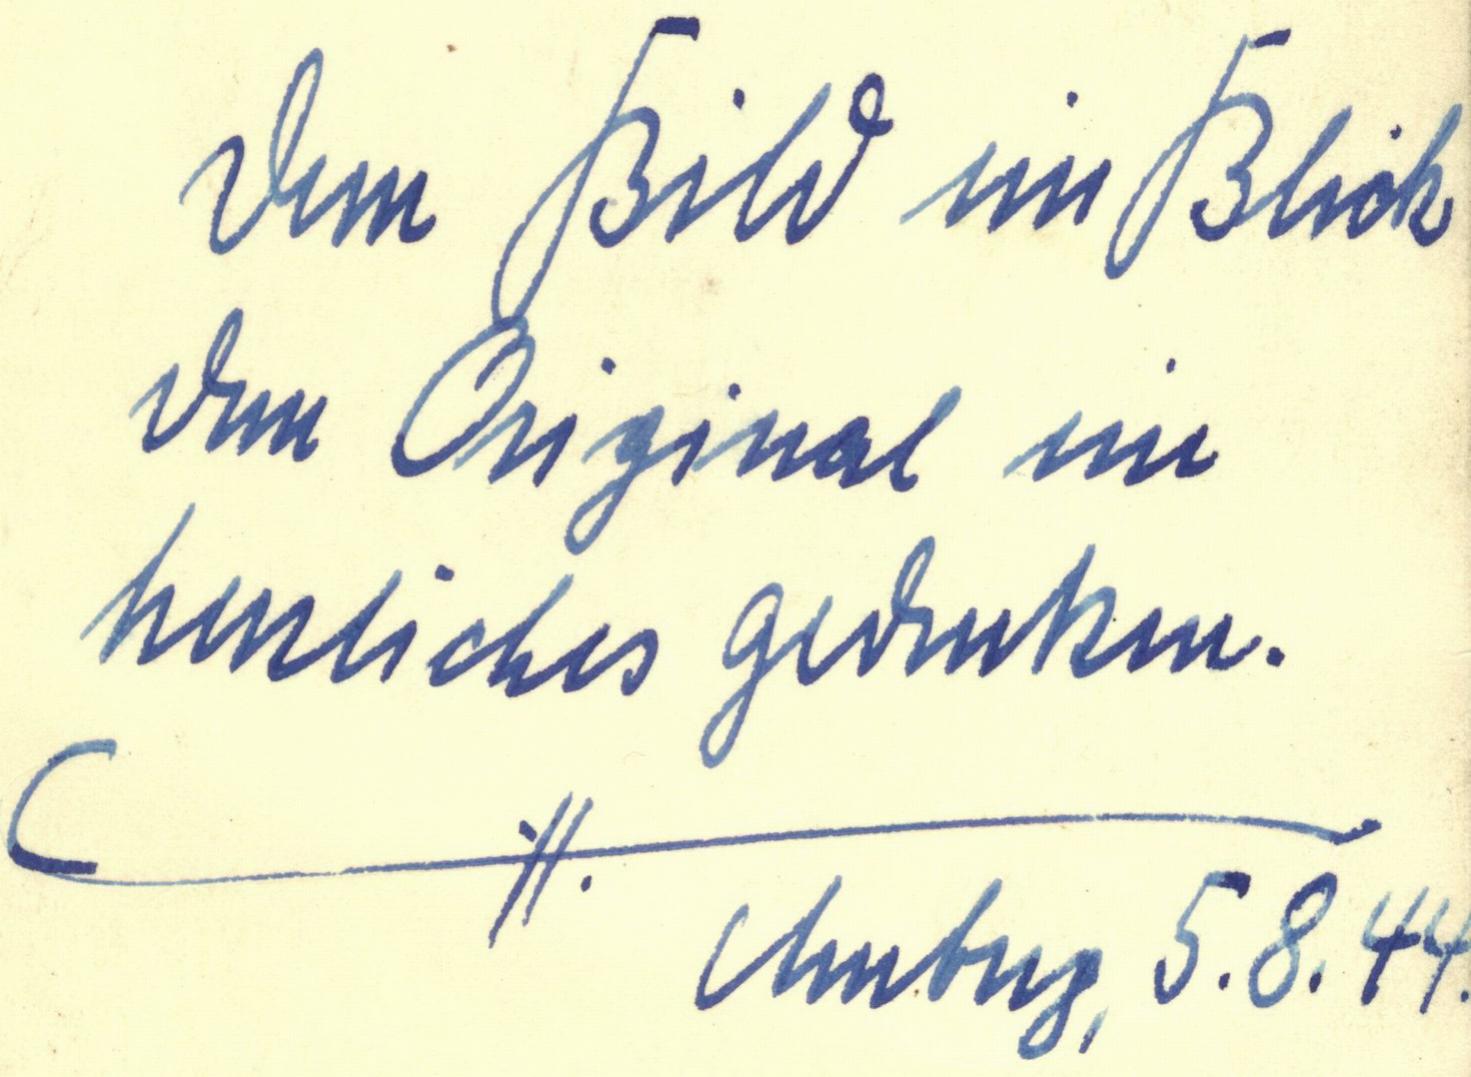 Dem Bild ein Blick
dem Original ein
herzliches gedenken.
H.
Amberg, 5.8.44.